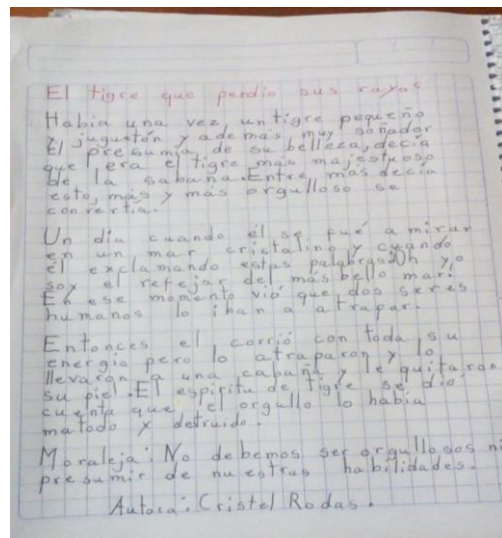 El tigre que perdio sus rayas
Había una vez, un tigre pequeño
y juguetón y además muy soñador
El presumía de su belleza, decía
que era el tigre más majestuoso
de la sabana. Entre más decía
esto, más y más orgulloso se
convertia.
Un día cuando él se fué a mirar
en un mar cristalino y cuando
él exclamando estas palabras: Oh yo
soy el reflejar del más bello mar!
En ese momento vió que dos seres
humanos lo iban a atrapar.
Entonces el corrió con toda su
energia pero lo atraparon y lo
llevaron a una cabaña y le quitaron
su piel. El espiritu de tigre se dio
cuenta que el orgullo lo había
matado y detruido.
Moraleja: No debemos ser orgullosos ni
presumir de nuestras habilidades.
Autora: Cristel Rodas.